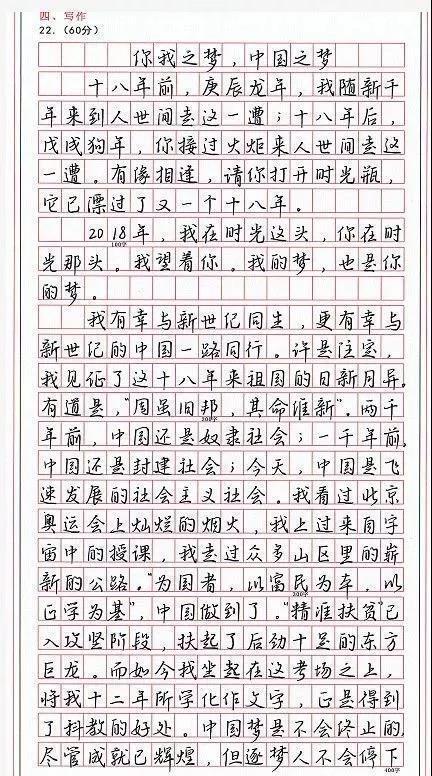 四、写作
22.（60分）
你我之梦，中国之梦
十八年前，庚辰龙年，我随新千
年来到人世间去这一遭；十八年后，
戊戌狗年，你接过火炬来人世间去这
一遭。有缘相逢，请你打开时光瓶，
它已漂过了又一个十八年。
2018年，我在时光这头，你在时
100字
光那头。我望着你。我的梦，也是你
的梦。
我有幸与新世纪同生，更有幸与
新世纪的中国一路同行。许是注定，
我见证了这十八年来祖国的日新月异。
有道是，“周虽旧邦，其命维新”。两千
200字
年前，中国还是奴隶社会；一千年前，
中国还是封建社会；今天，中国是飞
速发展的社会主义社会。我看过北京
奥运会上灿烂的烟火，我上过来自宇
宙中的授课，我走过众多山区里的崭
新的公路。“为国者，以富民为车，以
300字
正学为基”，中国做到了。“精准扶贫”已
入攻坚阶段，扶起了后劲十足的东方
巨龙。而如今我坐起在这考场之上，
将我十二年所学化作文字，正是得到
了科教的好处。中国梦是不会终止的，
尽管成就已辉煌，但逐梦人不会停下
400字